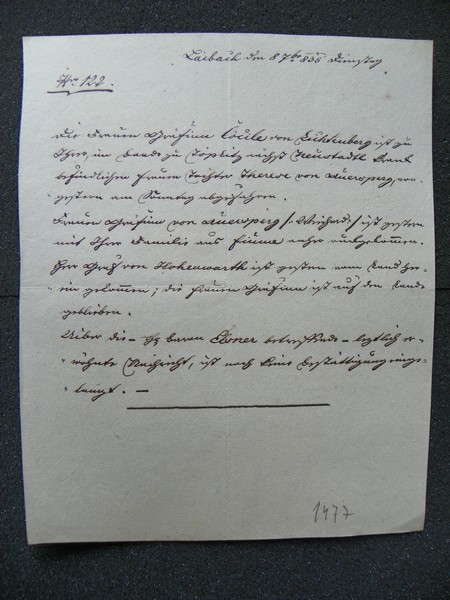 Laibach den 8 7ber 835 Dienstag
Nro 122.
Die Frauen Gräfinn Cecile von Lichtenberg ist zu
Ihrer, im Bade zu Töplitz nächst Neustadtl Krank
befindlichen Frauen Tochter Therese von Auersperg, vor-
gestern am Sonntag abgefahren.
Frauen Gräfinn von Auersperg /: Weichard :/ ist gestern
mit Ihrer Familie aus Fiume anher rückgekommen.
Herr Graf von Hohenwarth ist gestern vom Land her-
ein gekommen; die Frauen Gräfinn ist auf dem Lande
geblieben.
Uiber die - H baron Ebner betreffende - letztlich er-
wähnte Nachricht, ist noch keine Bestättigung einge-
langt. —
1477